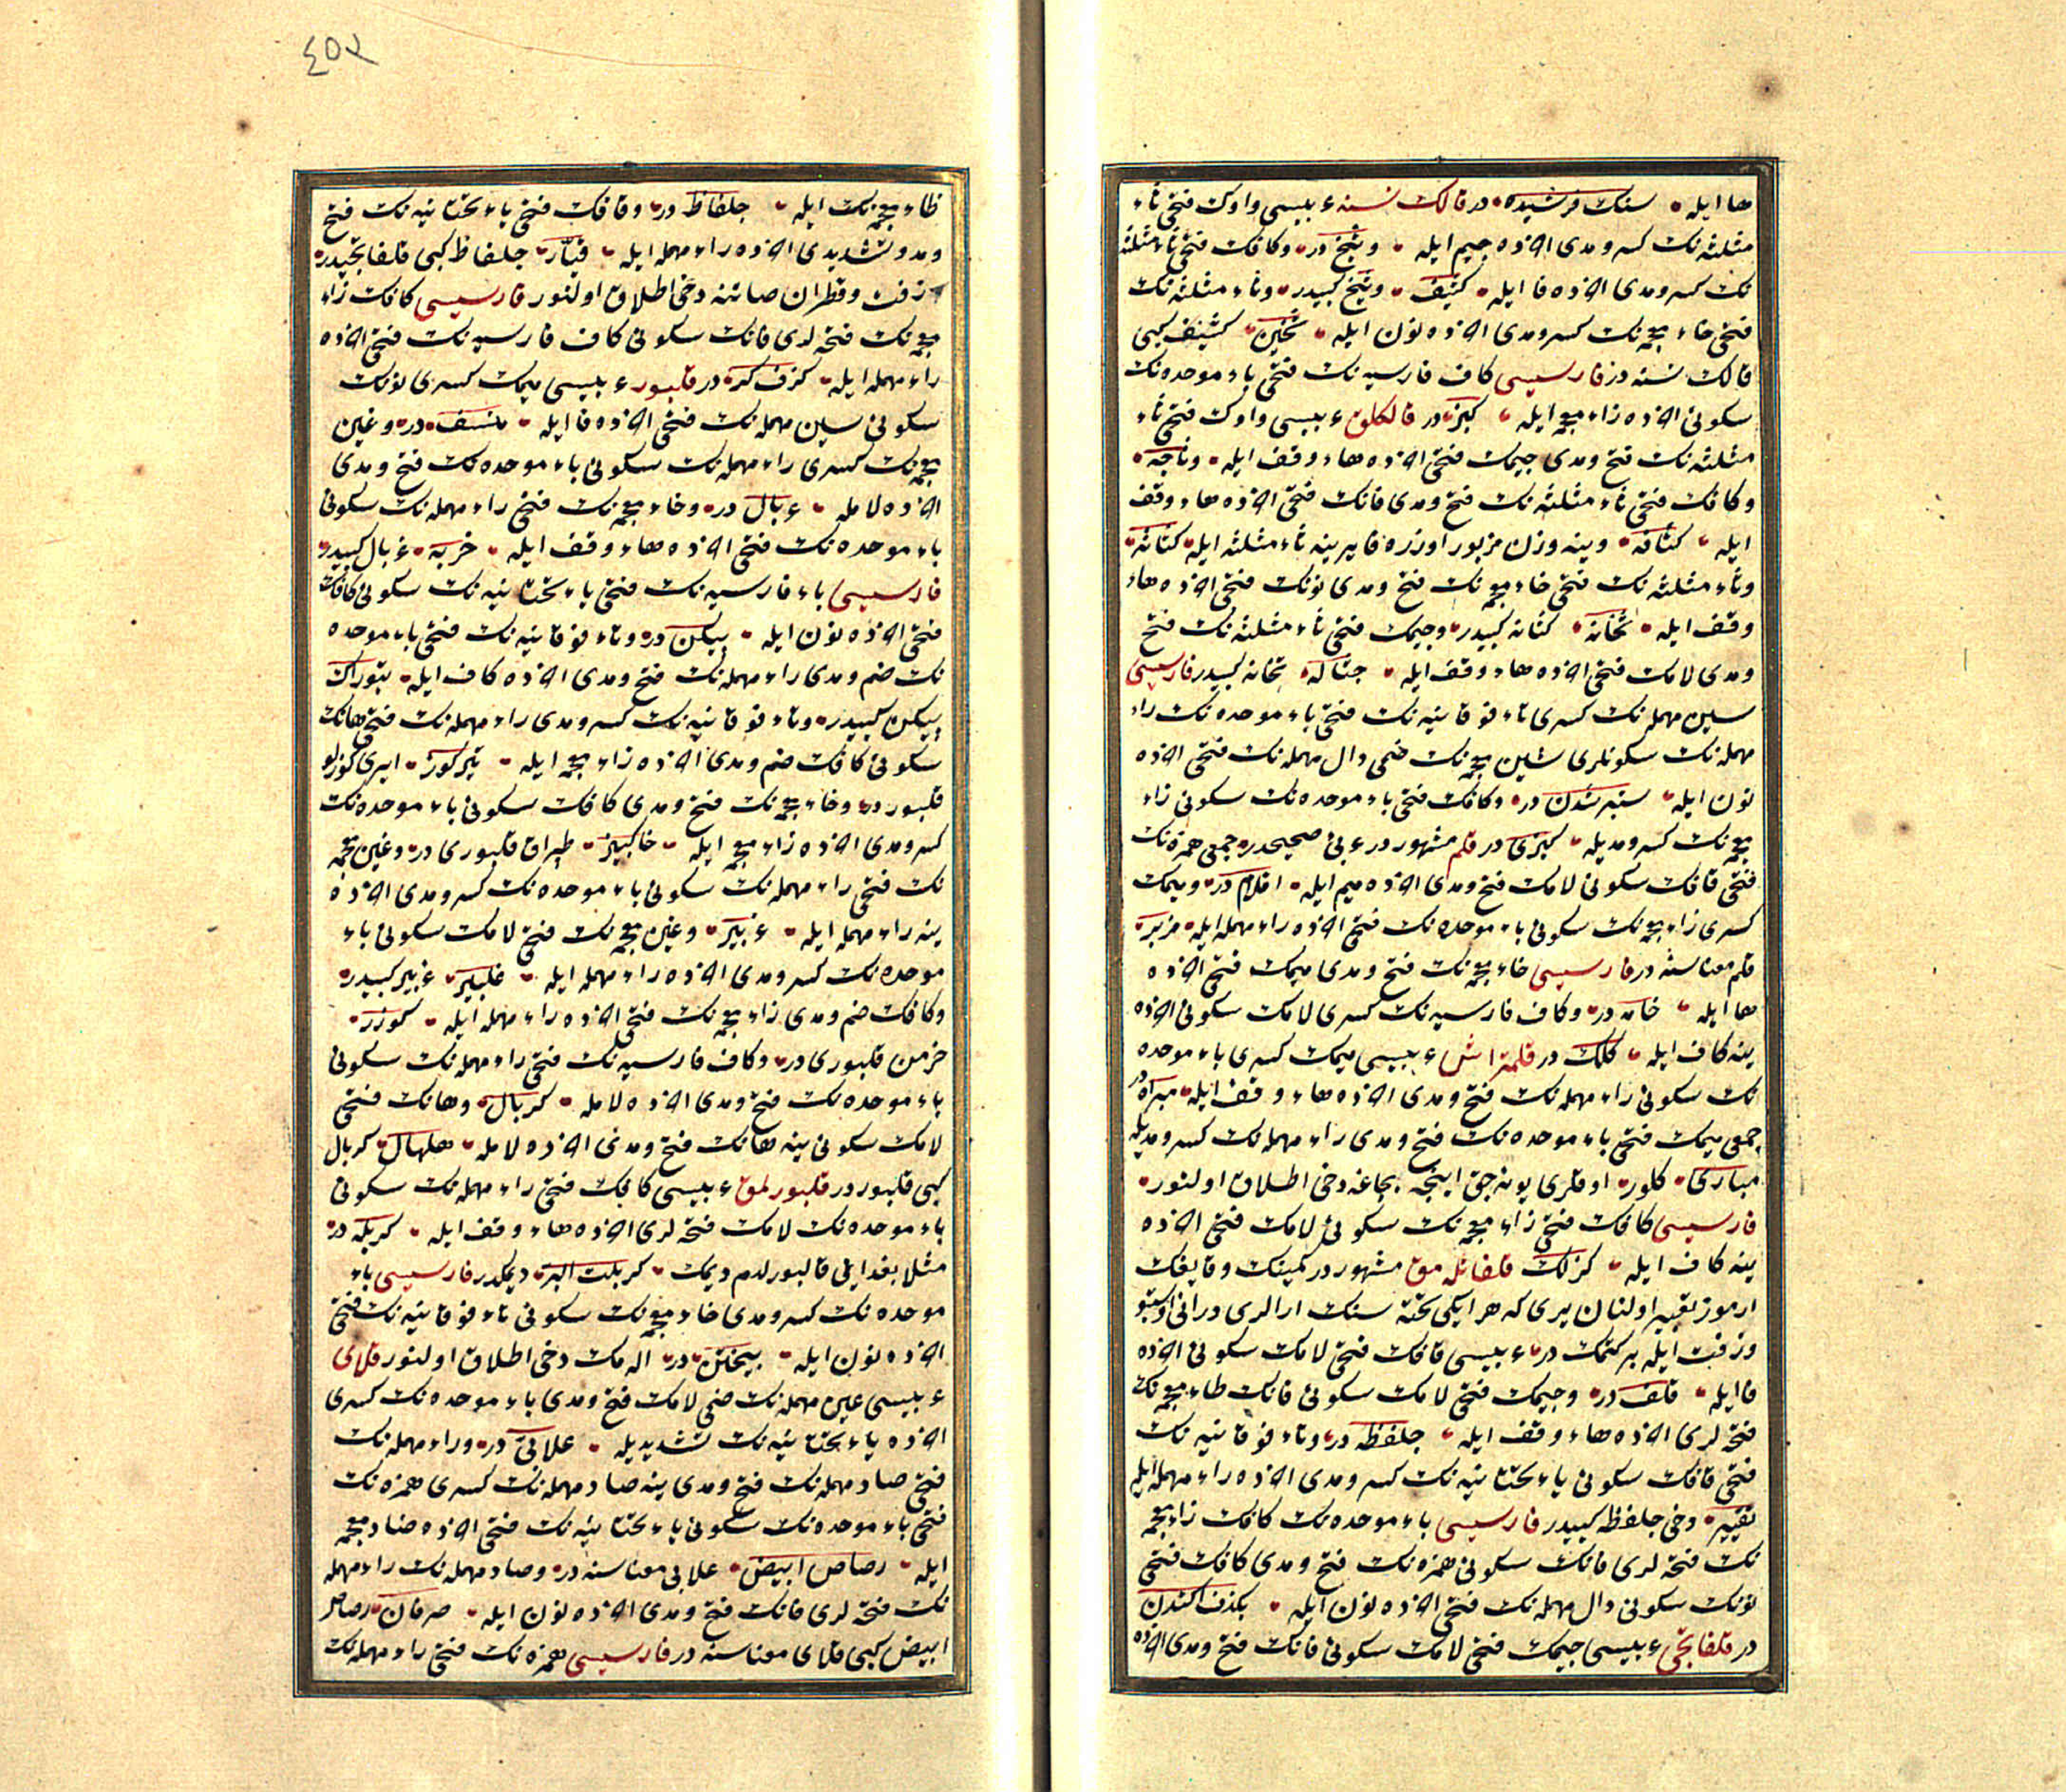 ها ایله سنك فرشیده در قالك نسنه عربیسی واوك فتحی ثاء
مثلثه نك كسر و مدی اخرده جیم ایله وثیج در وكافك فتحی ثاء مثلثه
نك كسر و مدی اخرده فا ایله كثیف وثیج كبیدر وثاء مثلثه نك
فتحی خاء معجمه نك كسر و مدی اخرده نون ایله ثخین كثیف كبی
قالك نسنه در فارسیسی كاف فارسیه نك فتحی باء موحده نك
سكونی اخرده زاء معجمه ایله كبز در قالكلق عربیسی واوك فتحی ثاء
مثلثه نك فتح و مدی جیمك فتحی اخرده هاء وقف ایله وثاجه
وكافك فتحی ثاء مثلثه نك فتح و مدی فانك فتحی اخرده هاء وقف
ایله كثافه وینه وزن مزبور اوزره فا یرینه ثاء مثلثه ایله كثاثه
وثاء مثلثه نك فتحی خاء معجمه نك فتح و مدی نونك فتحی اخرده هاء
وقف ایله ثخانه كثاثه كبیدر وجیمك فتحی ثاء مثلثه نك فتح
و مدی لامك فتحی اخرده هاء وقف ایله جثاله ثخانه كبیدر فارسیسی
سین مهمله نك كسری تاء فوقانیه نك فتحی باء موحده نك راء
مهمله نك سكونلری شین معجمه نك ضمی دال مهمله نك فتحی اخرده
نون ایله ستبر شدن در وكافك فتحی باء موحده نك سكونی زاء
معجمه نك كسر و مدیله كبزی در قلم مشهور در عربی صحیحدر جمعی همزه نك
فتحی قافك سكونی لامك فتح و مدی اخرده میم ایله اقلام در و میمك
كسری زاء معجمه نك سكونی باء موحده نك فتحی اخرده راء مهمله ایله مزبر
قلم معناسنه در فارسیسی خاء معجمه نك فتح و مدی میمك فتحی اخرده
ها ایله خامه در وكاف فارسیه نك كسری لامك سكونی اخرده
ینه كاف ایله كلك در قلمتراش عربیسی میمك كسری باء موحده
نك سكونی راء مهمله نك فتح و مدی اخرده هاء وقف ایله مبراة در
جمعی میمك فتحی باء موحده نك فتح و مدی راء مهمله نك كسر و مدیله
مباری كلور اوقلری یونه جق اینجه بچاغه دخی اطلاق اولنور
فارسیسی كافك فتحی زاء معجمه نك سكونی لامك فتحی اخرده
ینه كاف ایله كزلك قلفاتله مق مشهور در كمینك وقایقك
ارموز تعبیر اولنان یری كه هر ایكی تخته سنك ارالری در انی اوستوپو
وزفت ایله بركتمك در عربیسی قافك فتحی لامك سكونی اخرده
فا ایله قلف در وجیمك فتحی لامك سكونی فانك ظاء معجمه نك
فتحه لری اخرده هاء وقف ایله جلفظه در وتاء فوقانیه نك
فتحی قافك سكونی یاء تحتانیه نك كسر و مدی اخرده راء مهمله ایله
تقییر دخی جلفظه كبیدر فارسیسی باء موحده نك كافك زاء معجمه
نك فتحه لری فانك سكونی همزه نك فتح و مدی كافك فتحی
نونك سكونی دال مهمله نك فتحی اخرده نون ایله بكزف اكندن
در قلفاتجی عربیسی جیمك فتحی لامك سكونی فانك فتح و مدی اخرده
٤٥٢
ظاء معجمه نك ایله جلفاظ در وقافك فتحی یاء تحتانیه نك فتح
و مد و تشدیدی اخرده راء مهمله ایله قیّار جلفاظ كبی قلفاتجیدر
زفت وقطران صاتنه دخی اطلاق اولنور فارسیسی كافك زاء
معجمه نك فتحه لری فانك سكونی كاف فارسیه نك فتحی اخرده
راء مهمله ایله كزف كر در قلبور عربیسی میمك كسری نونك
سكونی سین مهمله نك فتحی اخرده فا ایله منسف در وغین
معجمه نك كسری راء مهمله نك سكونی باء موحده نك فتح و مدی
اخرده لامله غربال در وخاء معجمه نك فتحی راء مهمله نك سكونی
باء موحده نك فتحی اخرده هاء وقف ایله خربه غربال كبیدر
فارسیسی باء فارسیه نك فتحی یاء تحتانیه نك سكونی كافك
فتحی اخرده نون ایله پیكن در وتاء فوقانیه نك فتحی باء موحده
نك ضم و مدی راء مهمله نك فتح و مدی اخرده كاف ایله تبوراك
پیكن كبیدر وتاء فوقانیه نك كسر و مدی راء مهمله نك فتحی هانك
سكونی كافك ضم و مدی اخرده زاء معجمه ایله تیركوز ایری كوزلو
قلبور در وخاء معجمه نك فتح و مدی كافك سكونی باء موحده نك
كسر و مدی اخرده زاء معجمه ایله خاكبیز طپراق قلبوری در وغین معجمه
نك فتحی راء مهمله نك سكونی باء موحده نك كسر و مدی اخرده
ینه راء مهمله ایله غربیر وغین معجمه نك فتحی لامك سكونی باء
موحده نك كسر و مدی اخرده راء مهمله ایله غلبیر غربیر كبیدر
وكافك ضم و مدی زاء معجمه نك فتحی اخرده راء مهمله ایله كوزر
خرمن قلبوری در وكاف فارسیه نك فتحی راء مهمله نك سكونی
باء موحده نك فتح و مدی اخرده لامله كربال وهانك فتحی
لامك سكونی ینه هانك فتح و مدی اخرده لامله هلهال كربال
كبی قلبور در قلبورلمق عربیسی كافك فتحی راء مهمله نك سكونی
باء موحده نك لامك فتحه لری اخرده هاء وقف ایله كربله در
مثلا بغدایی قالبورلدم دیمك كربلت البر دیمكدر فارسیسی باء
موحده نك كسر و مدی خاء معجمه نك سكونی تاء فوقانیه نك فتحی
اخرده نون ایله بیختن در اله مك دخی اطلاق اولنور قلای
عربیسی عین مهمله نك ضمی لامك فتح و مدی باء موحده نك كسری
اخرده یاء تحتانیه نك تشدیدیله علابیّ در وراء مهمله نك
فتحی صاد مهمله نك فتح و مدی ینه صاد مهمله نك كسری همزه نك
فتحی باء موحده نك سكونی یاء تحتانیه نك فتحی اخرده ضاد معجمه
ایله رصاص ابیض علابی معناسنه در وصاد مهمله نك راء مهمله
نك فتحه لری فانك فتح و مدی اخرده نون ایله صرفان رصاص
ابیض كبی قلای معناسنه در فارسیسی همزه نك فتحی راء مهمله نك